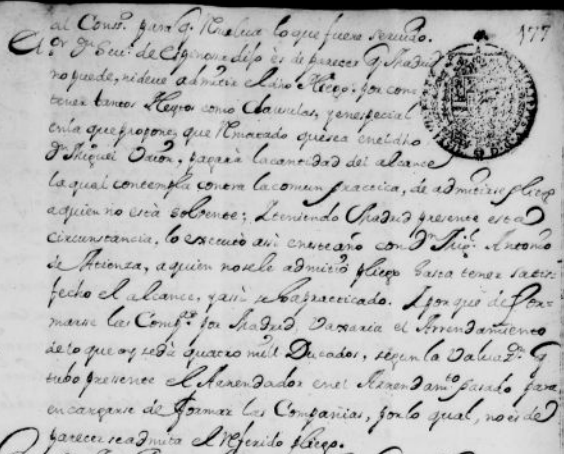 al Cons.º para q. Resuelva lo que fuere servido.
177
El S.or Dn. de Espinosa dijo es de parecer q. Madrid
no puede, ni deve admitir el dho Pliego, por con
tener tantos como Clausulas, y en especial
en la que propone, que Rematado que sea en el dho
Dn. Miguel Varon, pagarà la cantidad del alcance
la qual contempla contra la comun practica, de admitirse pliego
a quien no està solvente; I teniendo Madrid presente esta
circunstancia, lo executò assi en este año con Dn. Mig.l Antonio
de Atienza, a quien no se le admitiò pliego hasta tener satis
fecho el alcance, y assi se ha practicado. I por què de for
marse las Comp.as por Madrid, vaxaria el Arrendamiento
de lo que oy se dà quatro mill Ducados, segun la Valuaz.n q
tubo presente el Arrendador en el Arrendam.to pasado para
encargarse de formar las Compañias, por lo qual, no es de
parecer se admita el Referido pliego.